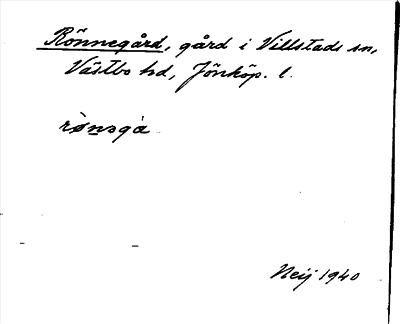 Rönnegård, gård i Villstads sn,
Västbo hd, Jönköp. l.
rønsgà
Neij 1940